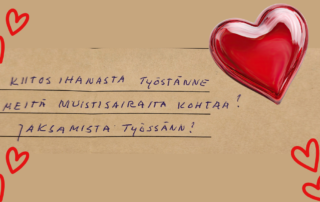 KIITOS IHANASTA TYÖSTÄNNE
MEITÄ MUISTISAIRAITA KOHTAA!
JAKSAMISTA TYÖSSÄNN!